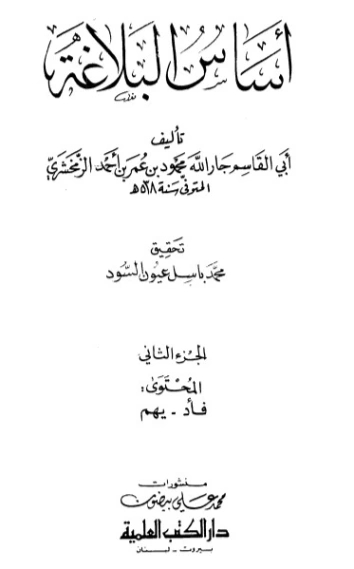 أساس البلاغة
تأليف
أبي القاسم جار الله محمود بن عمر بن أحمد الزمخشري
المتوفى سنة ٥٣٨ هـ
تحقيق
محمد باسل عيون السود
الجزء الثاني
المحتوى:
فأد - يهم
منشورات
محمد علي بيضون
دار الكتب العلمية
بيروت - لبنان